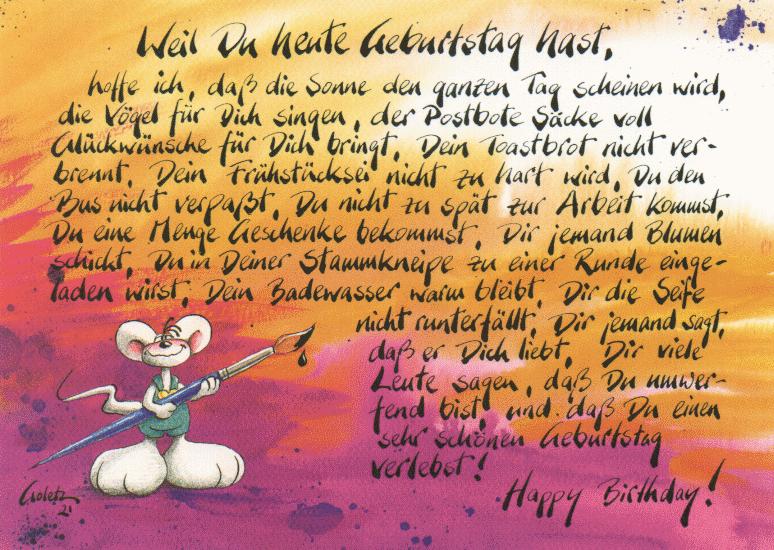 Weil Du heute Geburtstag hast,
hoffe ich, daß die Sonne den ganzen Tag scheinen wird,
die Vögel für Dich singen, der Postbote Säcke voll
Glückwünsche für Dich bringt, Dein Toastbrot nicht ver-
brennt, Dein Frühstücksei nicht zu hart wird, Du den
Bus nicht verpaßt, Du nicht zu spät zur Arbeit kommst,
Du eine Menge Geschenke bekommst, Dir jemand Blumen
schickt, Du in Deiner Stammkneipe zu einer Runde einge-
laden wirst, Dein Badewasser warm bleibt, Dir die Seife
nicht runterfällt, Dir jemand sagt,
daß er Dich liebt, Dir viele
Leute sagen, daß Du umwer-
fend bist, und daß Du einen
sehr schönen Geburtstag
verlebst!
Happy Birthday!
Goletz
21